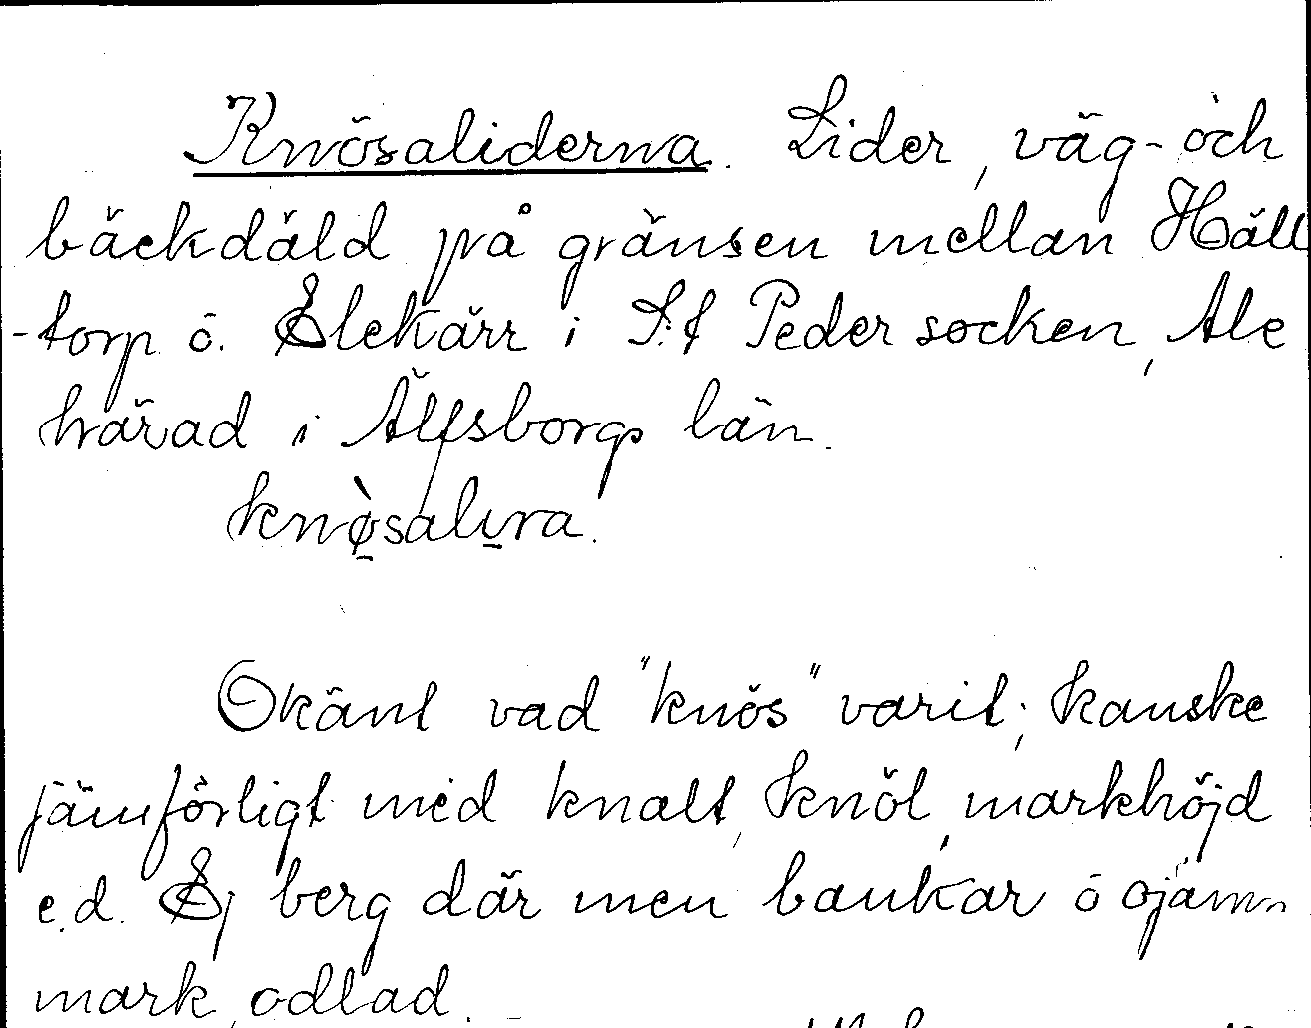 Knösaliderna. Lider, väg- och
bäckdäld på gränsen mellan Häll
-torp o. Elekärr i S:t Peder socken, Ale
härad i Älfsborgs län.
knø̠̀salı̠ra.
Okänt vad "knös" varit; kanske
jämförligt med knalt, knöl, markhöjd
e.d. Ej berg där men bankar o ojämn
mark, odlad.